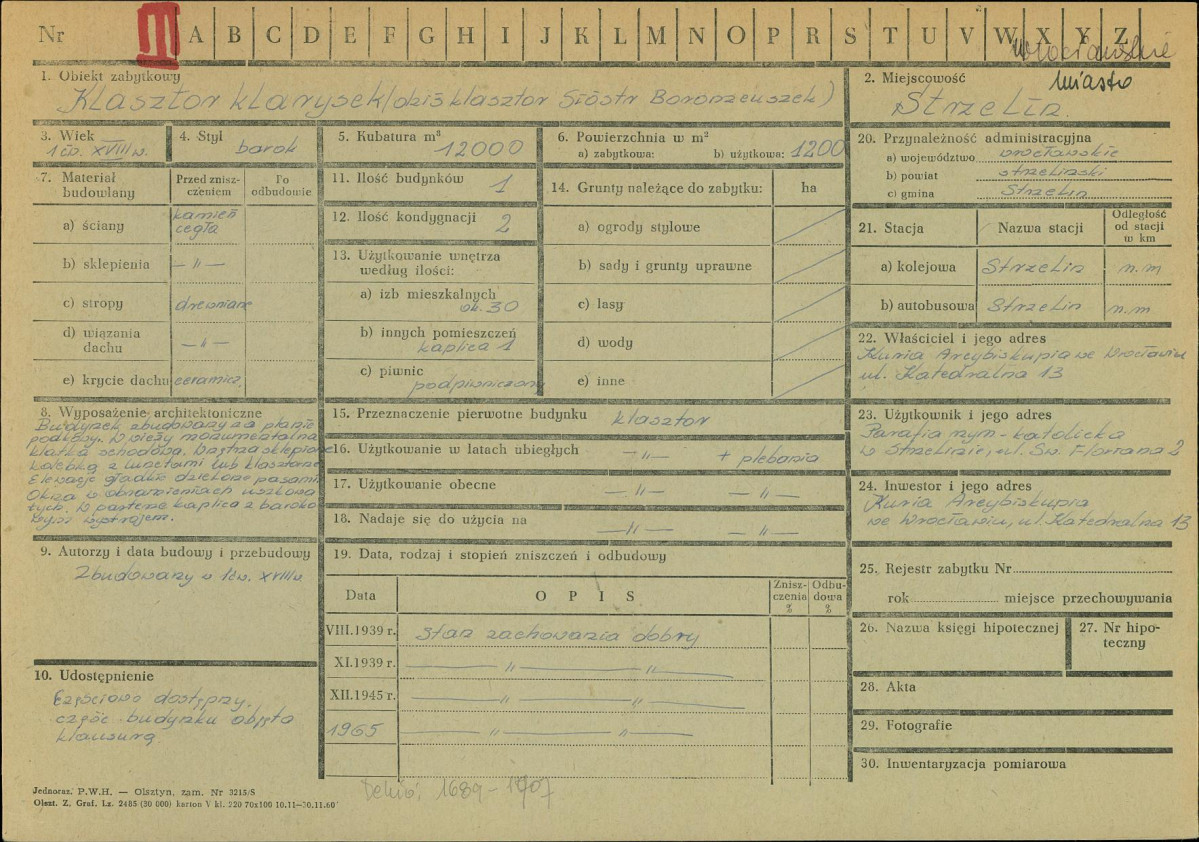 Nr III A B C D E F G H I J K L M N O P R S T U V W X Y Z
wrocławskie
miasto
1. Obiekt zabytkowy
Klasztor klarysek (dziś klasztor Sióstr Boromeuszek)
2. Miejscowość
Strzelin.
3. Wiek
1 ćw. XVIII w.
4. Styl
barok
5. Kubatura m³
12000
6. Powierzchnia w m²
a) zabytkowa: b) użytkowa: 1200
7. Materiał budowlany
Przed zniszczeniem
Po odbudowie
a) ściany kamień cegła
b) sklepienia —〃—
c) stropy drewniane
d) wiązania dachu —〃—
e) krycie dachu ceramicz.
8. Wyposażenie architektoniczne
Budynek zbudowany na planie
podkowy. W wieży monumentalna
klatka schodowa. Wnętrza sklepione
kolebką z lunetami lub klasztorne
Elewacje gładkie dzielone pasami
Okna w obramieniach uszkowa
tych. W parterze kaplica z baroko
wym wystrojem.
9. Autorzy i data budowy i przebudowy
Zbudowany w 1 ćw. XVIII w.
10. Udostępnienie
Częściowo dostępny.
część budynku objęta
klauzurą.
11. Ilość budynków 1
12. Ilość kondygnacji 2
13. Użytkowanie wnętrza
według ilości:
a) izb mieszkalnych
ok. 30
b) innych pomieszczeń
kaplica 1
c) piwnic
podpiwniczony
14. Grunty należące do zabytku: ha
a) ogrody stylowe
b) sady i grunty uprawne
c) lasy
d) wody
e) inne
15. Przeznaczenie pierwotne budynku klasztor
16. Użytkowanie w latach ubiegłych —〃— + plebania
17. Użytkowanie obecne —〃— —〃—
18. Nadaje się do użycia na —〃— —〃—
19. Data, rodzaj i stopień zniszczeń i odbudowy
Data OPIS Zniszczenia % Odbudowa %
VIII.1939 r. stan zachowania dobry
XI.1939 r. —〃—〃—
XII.1945 r. —〃—〃—
1965 —〃—〃—
20. Przynależność administracyjna
a) województwo wrocławskie
b) powiat strzeliński
c) gmina Strzelin
21. Stacja Nazwa stacji Odległość od stacji w km
a) kolejowa Strzelin n.m
b) autobusowa Strzelin n.m
22. Właściciel i jego adres
Kuria Arcybiskupia we Wrocławiu
ul. Katedralna 13
23. Użytkownik i jego adres
Parafia rzym-katolicka
w Strzelinie, ul. Św. Floriana 2
24. Inwestor i jego adres
Kuria Arcybiskupia
we Wrocławiu, ul. Katedralna 13
25. Rejestr zabytku Nr
rok miejsce przechowywania
26. Nazwa księgi hipotecznej
27. Nr hipoteczny
28. Akta
29. Fotografie
30. Inwentaryzacja pomiarowa
Jednoraz. P.W.H. — Olsztyn, zam. Nr 3215/S
Olszt. Z. Graf. Lz. 2485 (30 000) karton V kl. 220 70x100 10.11—30.11.60
Dehio: 1689-1707